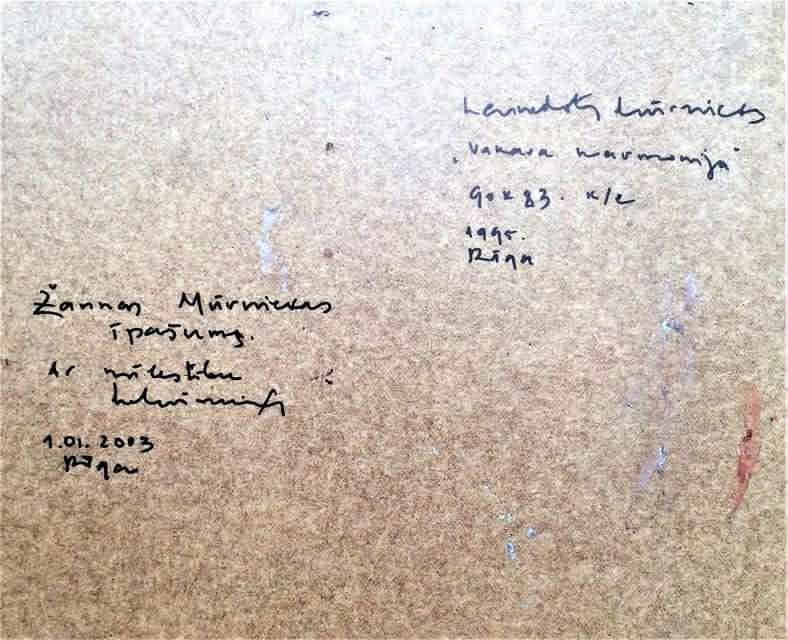 Laimdots Mūrnieks
„Vakara harmonija"
90 x 83. k/e
1995.
Rīga
Žannas Mūrniekas
īpašums.
Ar mīlestību
LMūrnieks
1.01.2003
Rīga